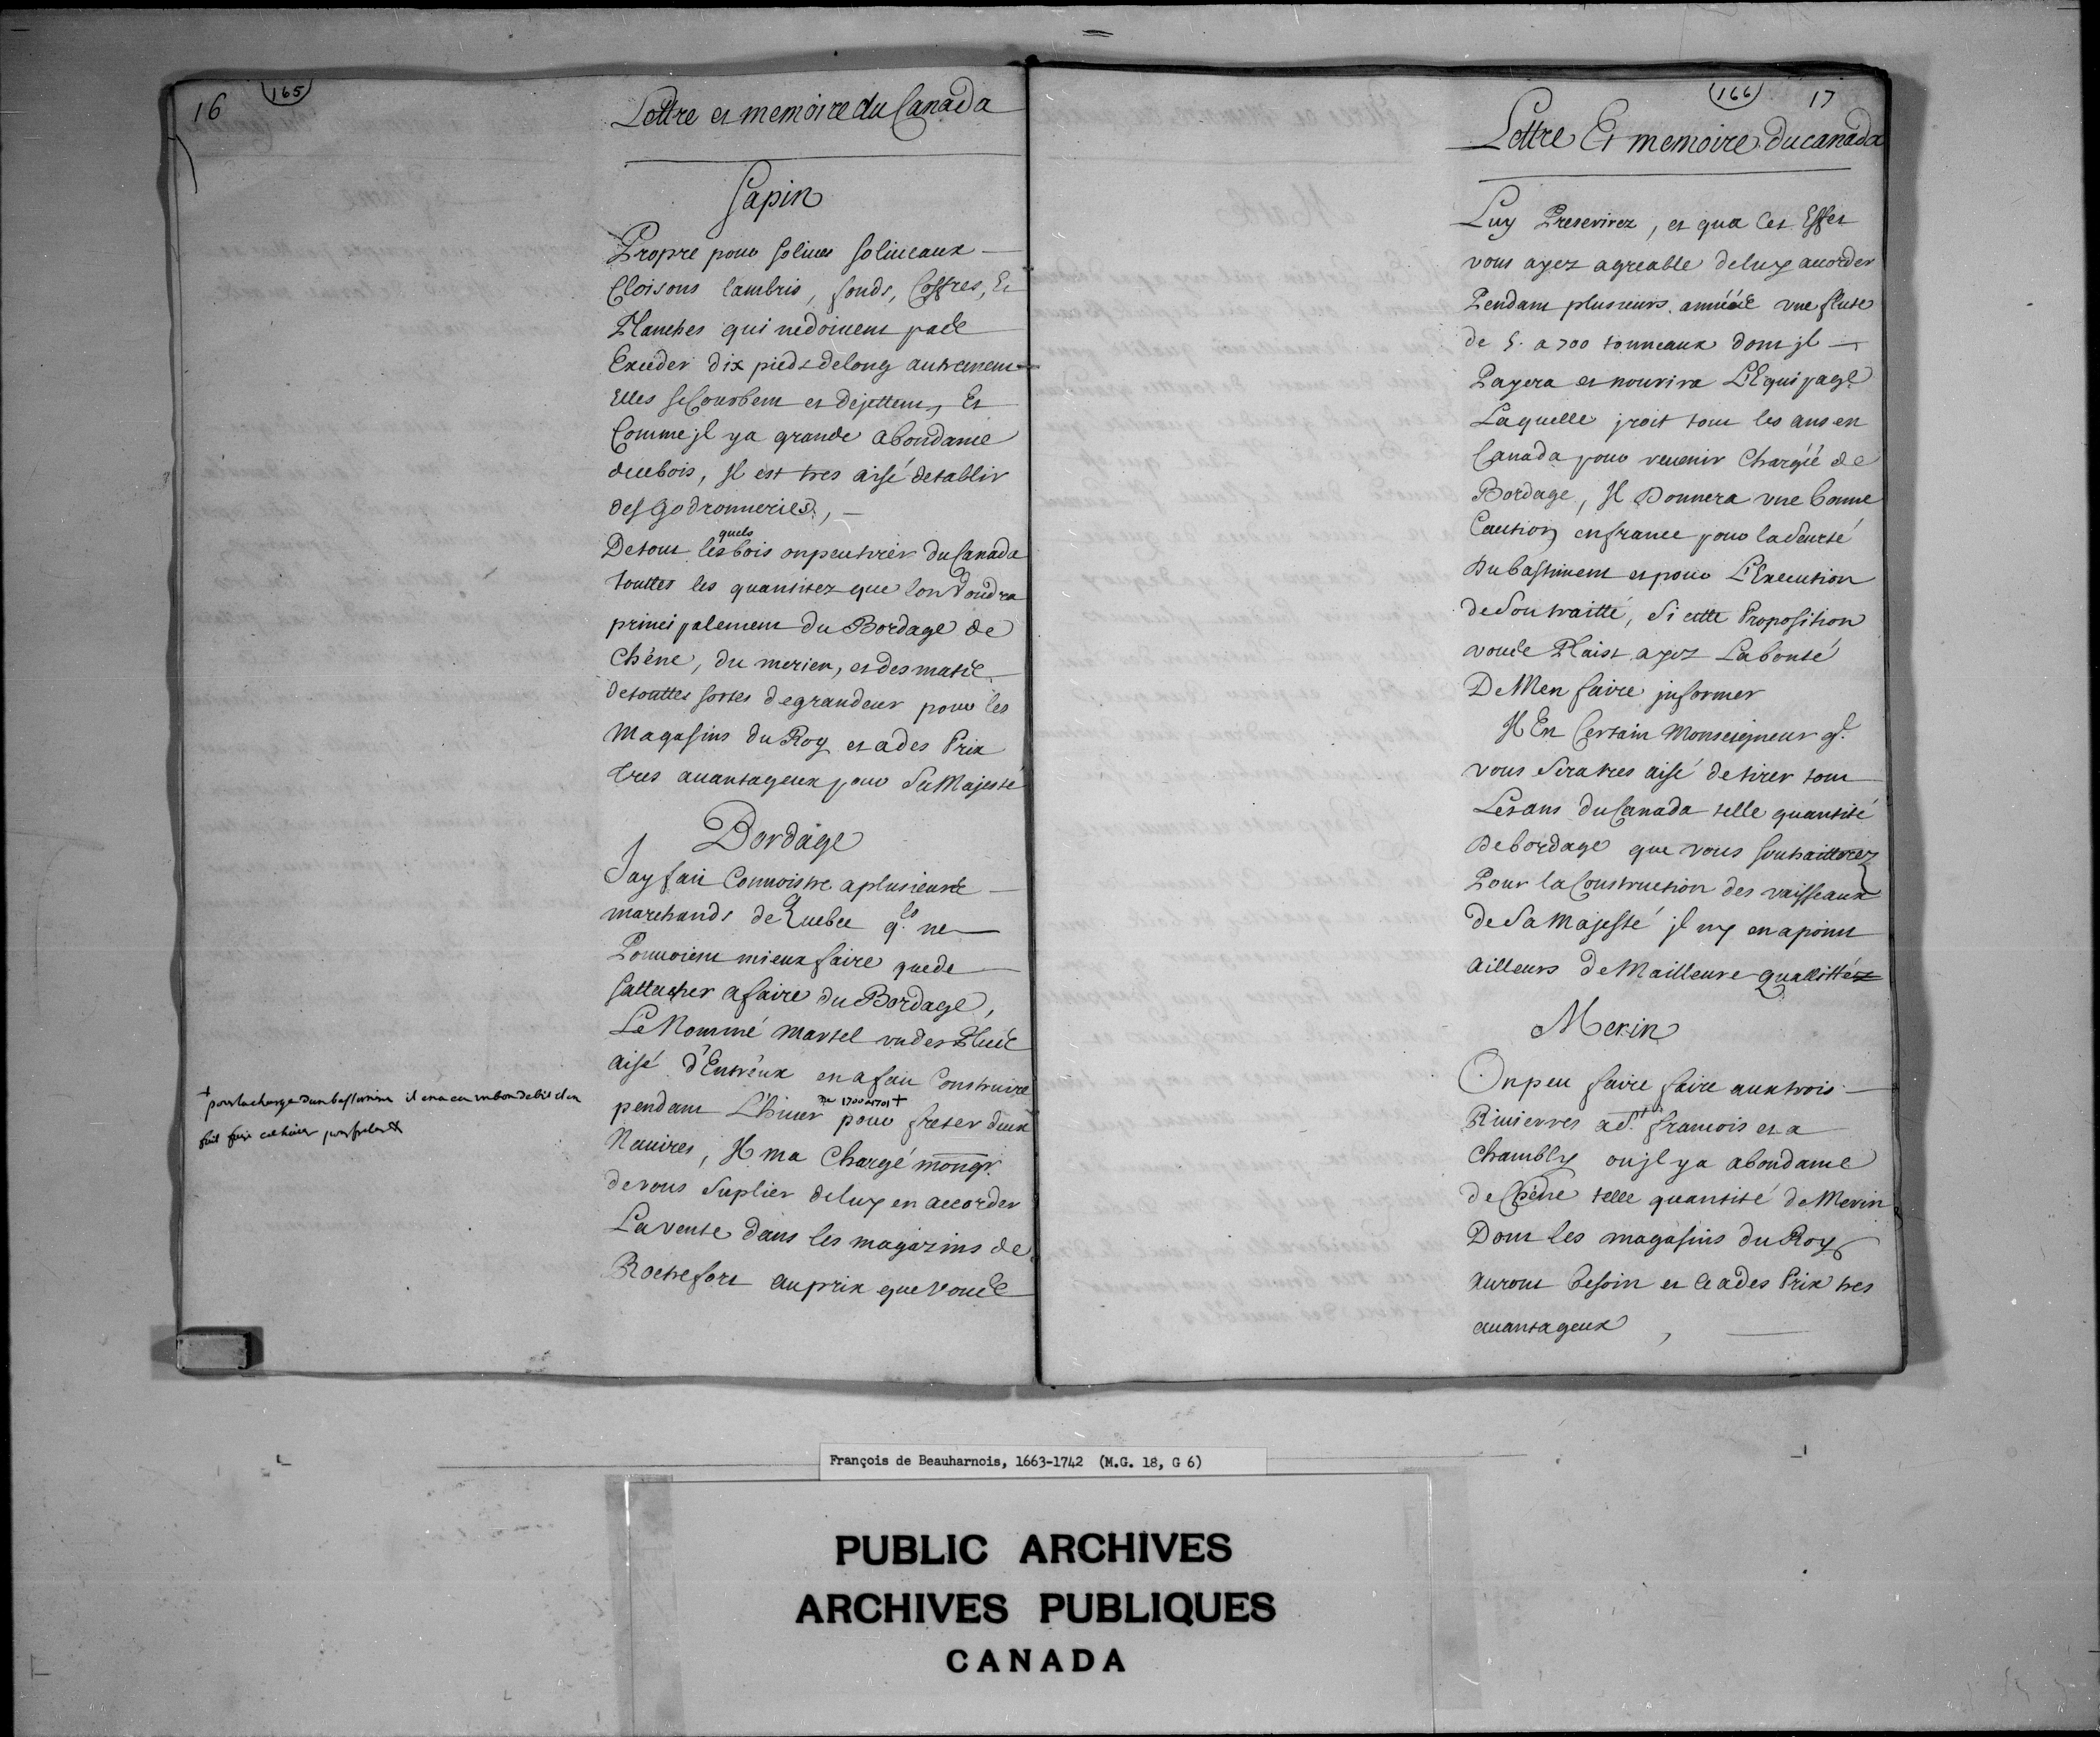 16
165
Lettre et memoire du Canada
Sapin
Propre pour soliues soliueaux
Cloisons lambris, fonds, Coffres, Et
Planches qui nedoiuent pas
Exceder dix pieds delong autrement
Elles seCourbent et dejettent, Et
Comme jl ya grande abondance
decebois, Jl est tres aisé detablir
des godronneries,
Detous lesquels bois onpeutirer du Canada
touttes les quantitez que lon Voudra
principalement du Bordage de
Chêne, du merien, et des mats
detouttes sortes degrandeur pour les
Magasins du Roy et ades Prix
tres auantageux pour SaMajesté
Bordage
Jay fait Connoistre aplusieurs
marchands de Quebec qls ne
Pouuoient mieux faire quede
sattacher afaire du Bordage,
Le Nommé Martel vndes Plus
aisé d'Entreux en a fait Construire
pendant L'hiuer de 1700 a 1701 + pour freter deux
Nauires, Jl ma Chargé mongr.
devous Suplier deluy en accorder
La vente dans les magazins de
Rochefort auprix que Vous
+ pour lacharge dunbastiment il ena eu vnbondebit et en
fait faire cethiuer pour freter
166
17
Lettre Et memoire du canada
Luy Prescrirez, et qua Cet Effet
vous ayez agreable deluy accorder
Pendant plusieurs années vne fluste
de 5. a 700 tonneaux dont jl
Payera et nourira L'Equipage
Laquelle jroit tous les ans en
Canada pour reuenir Chargéé de
Bordage, Jl Donnera vne bonne
Caution enfrance pour laSeureté
Dubastiment etpour L'Execution
deSontraitté, Si cette Proposition
vous Plaist ayez Labonté
DeMen faire jnformer
Jl Est Certain Monseigneur ql.
vous Seratres aisé detirer tous
Lesans duCanada telle quantité
Debordage que vous souhaitterez
Pour laConstruction des vaisseaux
deSaMajesté jl ny enapoint
ailleurs deMailleure quallitté
Merin
Onpeu faire faire auxtrois
Riuierres a St. francois et a
Chambly oujl ya abondance
deChêne telle quantité deMerin
Dont les magasins duRoy
auront besoin et Ce ades Prix tres
auantageux,
François de Beauharnois, 1663-1742 (M.G. 18, G 6)
PUBLIC ARCHIVES
ARCHIVES PUBLIQUES
CANADA